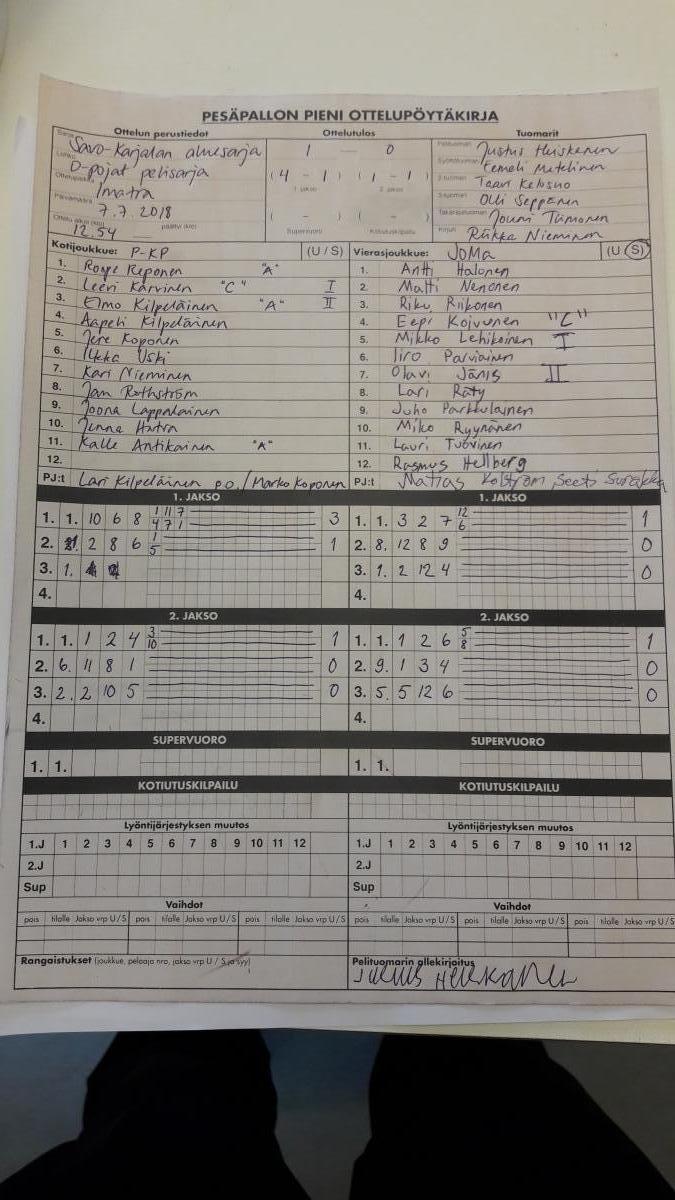 PESÄPALLON PIENI OTTELUPÖYTÄKIRJA
Ottelun perustiedot Ottelutulos Tuomarit
Sarja Savo-Karjalan aluesarja 1 — 0 Pelituomari Justus Heiskanen
Lohko D-pojat pelisarja (4 - 1) (1 - 1) Syöttötuomari Eemeli Matelinen
Ottelupaikka Imatra 1. jakso 2. jakso 2-tuomari Taavi Kelosuo
Päivämäärä 7.7.2018 3-tuomari Olli Seppänen
Ottelu alkoi (klo) 12.54 päättyi (klo) ( - ) ( - ) Takarajatuomari Jouni Tiimonen
Supervuoro Kotiutuskilpailu Kirjuri Riikka Nieminen
Kotijoukkue: P-KP (U / S) Vierasjoukkue: JoMa (U / S)
1. Roope Reponen "A" 1. Antti Halonen
2. Leevi Karvinen "C" I 2. Matti Nenonen
3. Elmo Kilpeläinen "A" II 3. Riku Riikonen
4. Aapeli Kilpeläinen 4. Eepi Koivunen "C"
5. Jere Koponen 5. Mikko Lehikoinen I
6. Ilkka Uski 6. Iiro Parviainen
7. Kari Nieminen 7. Olavi Jänis II
8. Jan Rothström 8. Lari Räty
9. Joona Lappalainen 9. Juho Parkkulainen
10. Jenna Hatra 10. Miko Ryynänen
11. Kalle Antikainen "A" 11. Lauri Tuovinen
12. 12. Rasmus Hellberg
PJ:t Lari Kilpeläinen p.o./Marko Koponen PJ:t Matias Kolström, Seeti Surakka
1. JAKSO 1. JAKSO
1. 1. 10 6 8 1/4 11/7 7/1 3 1. 1. 3 2 7 12/6 1
2. 1. 2 8 6 1/5 1 2. 8. 12 8 9 0
3. 1. 3. 1. 2 12 4 0
4. 4.
2. JAKSO 2. JAKSO
1. 1. 1 2 4 3/10 1 1. 1. 1 2 6 5/8 1
2. 6. 11 8 1 0 2. 9. 1 3 4 0
3. 2. 2 10 5 0 3. 5. 5 12 6 0
4. 4.
SUPERVUORO SUPERVUORO
1. 1. 1. 1.
KOTIUTUSKILPAILU KOTIUTUSKILPAILU
Lyöntijärjestyksen muutos Lyöntijärjestyksen muutos
1.J 1 2 3 4 5 6 7 8 9 10 11 12 1.J 1 2 3 4 5 6 7 8 9 10 11 12
2.J 2.J
Sup Sup
Vaihdot Vaihdot
pois tilalle Jakso vrp U / S pois tilalle Jakso vrp U / S pois tilalle Jakso vrp U / S pois tilalle Jakso vrp U / S pois tilalle Jakso vrp U / S pois tilalle Jakso vrp U / S
Rangaistukset (joukkue, pelaaja nro, jakso vrp U / S ja syy) Pelituomarin allekirjoitus